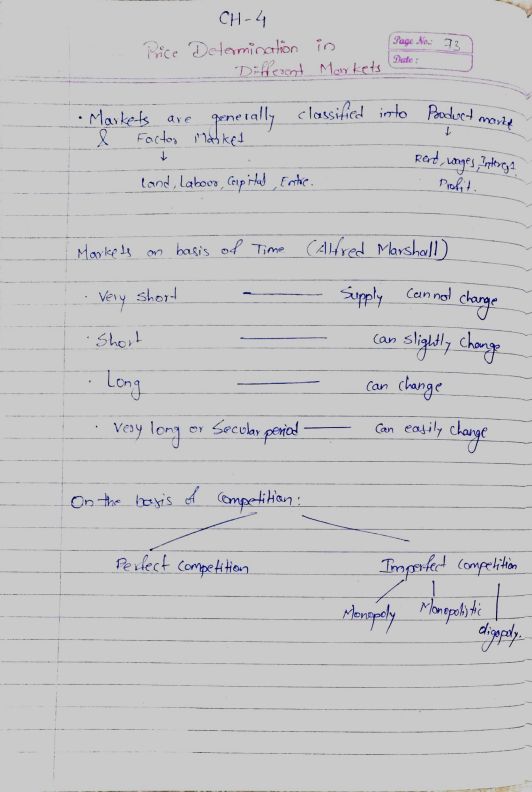 CH-4
Price Determination in
Different Markets
Page No.: 73
Date:
• Markets are generally classified into Product market
& Factor Market
Rent, wages, Interest
Profit.
Land, Labour, Capital, Entre.
Markets on basis of Time (Alfred Marshall)
• Very short —— Supply cannot change
• Short —— can slightly change
• Long —— can change
• Very long or Secular period —— can easily change
On the basis of Competition:
Perfect Competition Imperfect Competition
Monopoly Monopolistic
oligopoly.